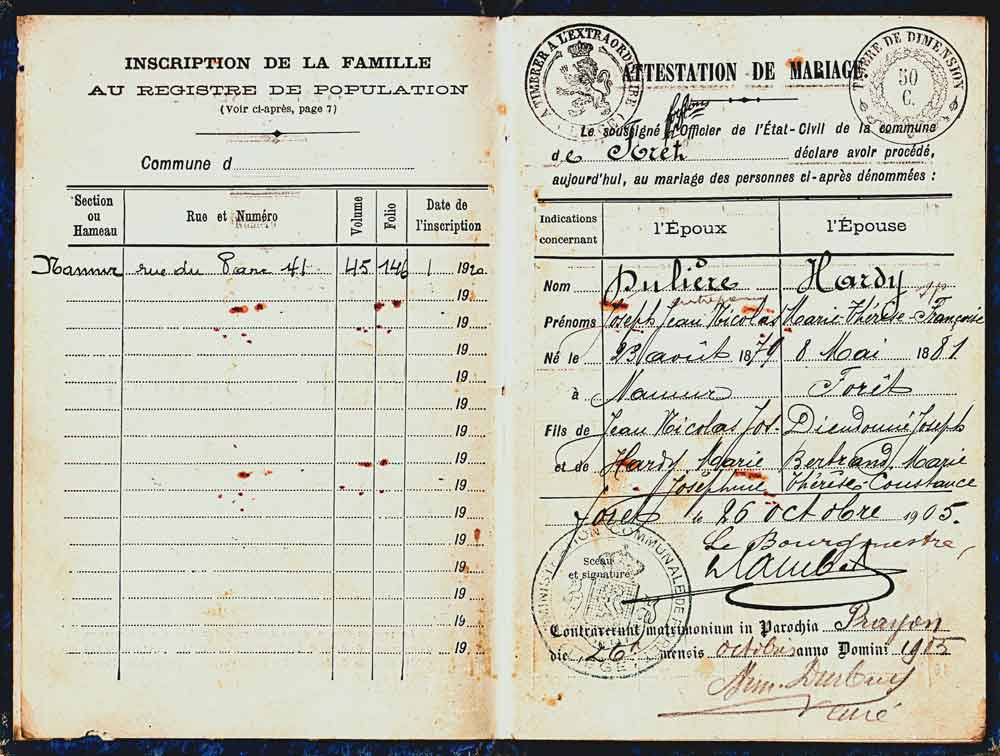 INSCRIPTION DE LA FAMILLE
AU REGISTRE DE POPULATION
(Voir ci-après, page 7)
Commune d
Section ou Hameau
Rue et Numéro
Volume
Folio
Date de l'inscription
Namur rue du Parc 41 45 146 1 1920
19
19
19
19
19
19
19
19
19
19
19
19
19
19
A TIMBRER A L'EXTRAORDINAIRE
LIEGE
TIMBRE DE DIMENSION
50 C.
ATTESTATION DE MARIAGE
Le soussigné Officier de l'État-Civil de la commune
de Forêt déclare avoir procédé,
aujourd'hui, au mariage des personnes ci-après dénommées :
Indications concernant
l'Époux
l'Épouse
Nom Pulière Hardy
Prénoms Joseph Jean Nicolas Marie-Thérèse-Françoise
Né le 23 août 1879 8 Mai 1881
à Namur Forêt
Fils de Jean Nicolas Jos- Dieudonné Joseph
et de Hardy Marie Bertrand, Marie
Joséphine Thérèse-Constance
Foret le 26 octobre 1905.
Le Bourgmestre,
Sceau
et signature
ADMINISTRATION COMMUNALE DE
Contraxerunt matrimonium in Parochia Prayon
die 26a mensis octobris anno Domini 1905
curé